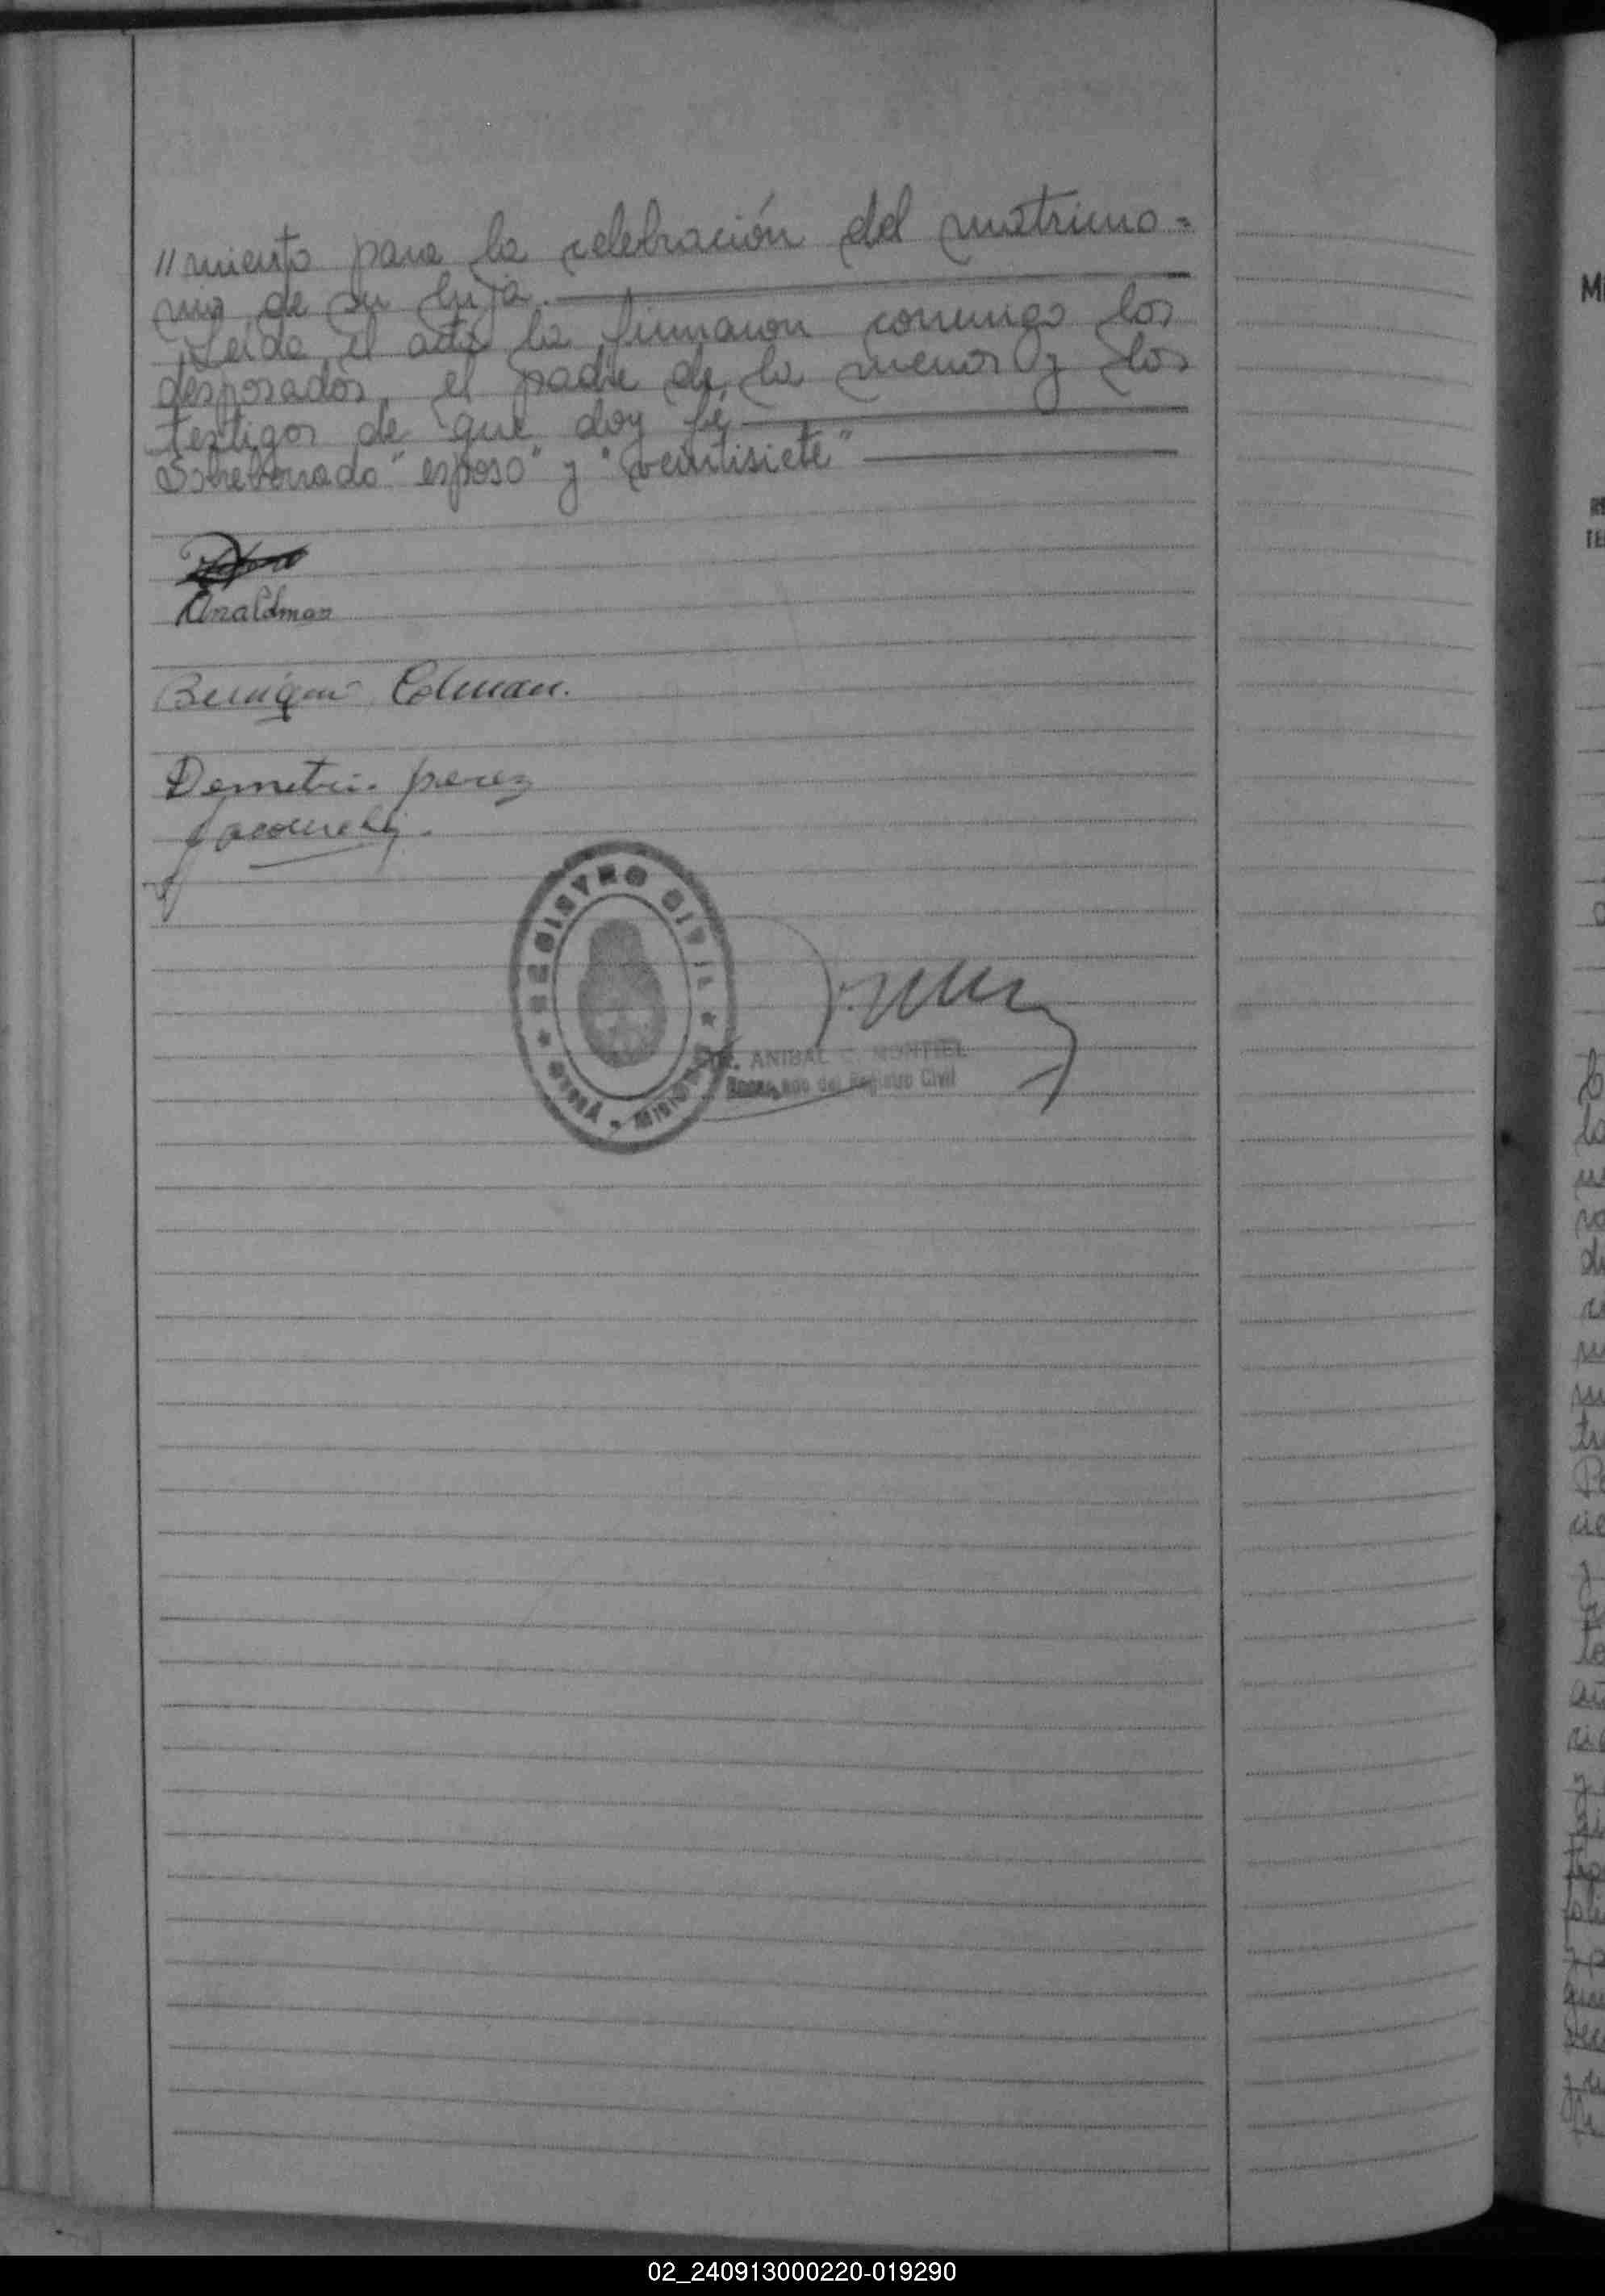 "miento para la celebración del matrimo=
nio de su hija.
Leída el acta la firmaron conmigo los
desposados, el padre de la menor y los
testigos de que doy fé
Sobreborrado "esposo" y "veintisiete"
Ana Colman
Benigno Colman.
Demetrio perez
REGISTRO CIVIL
MISIONES
ANIBAL C. MONTIEL
Encargado del Registro Civil
02_240913000220-019290